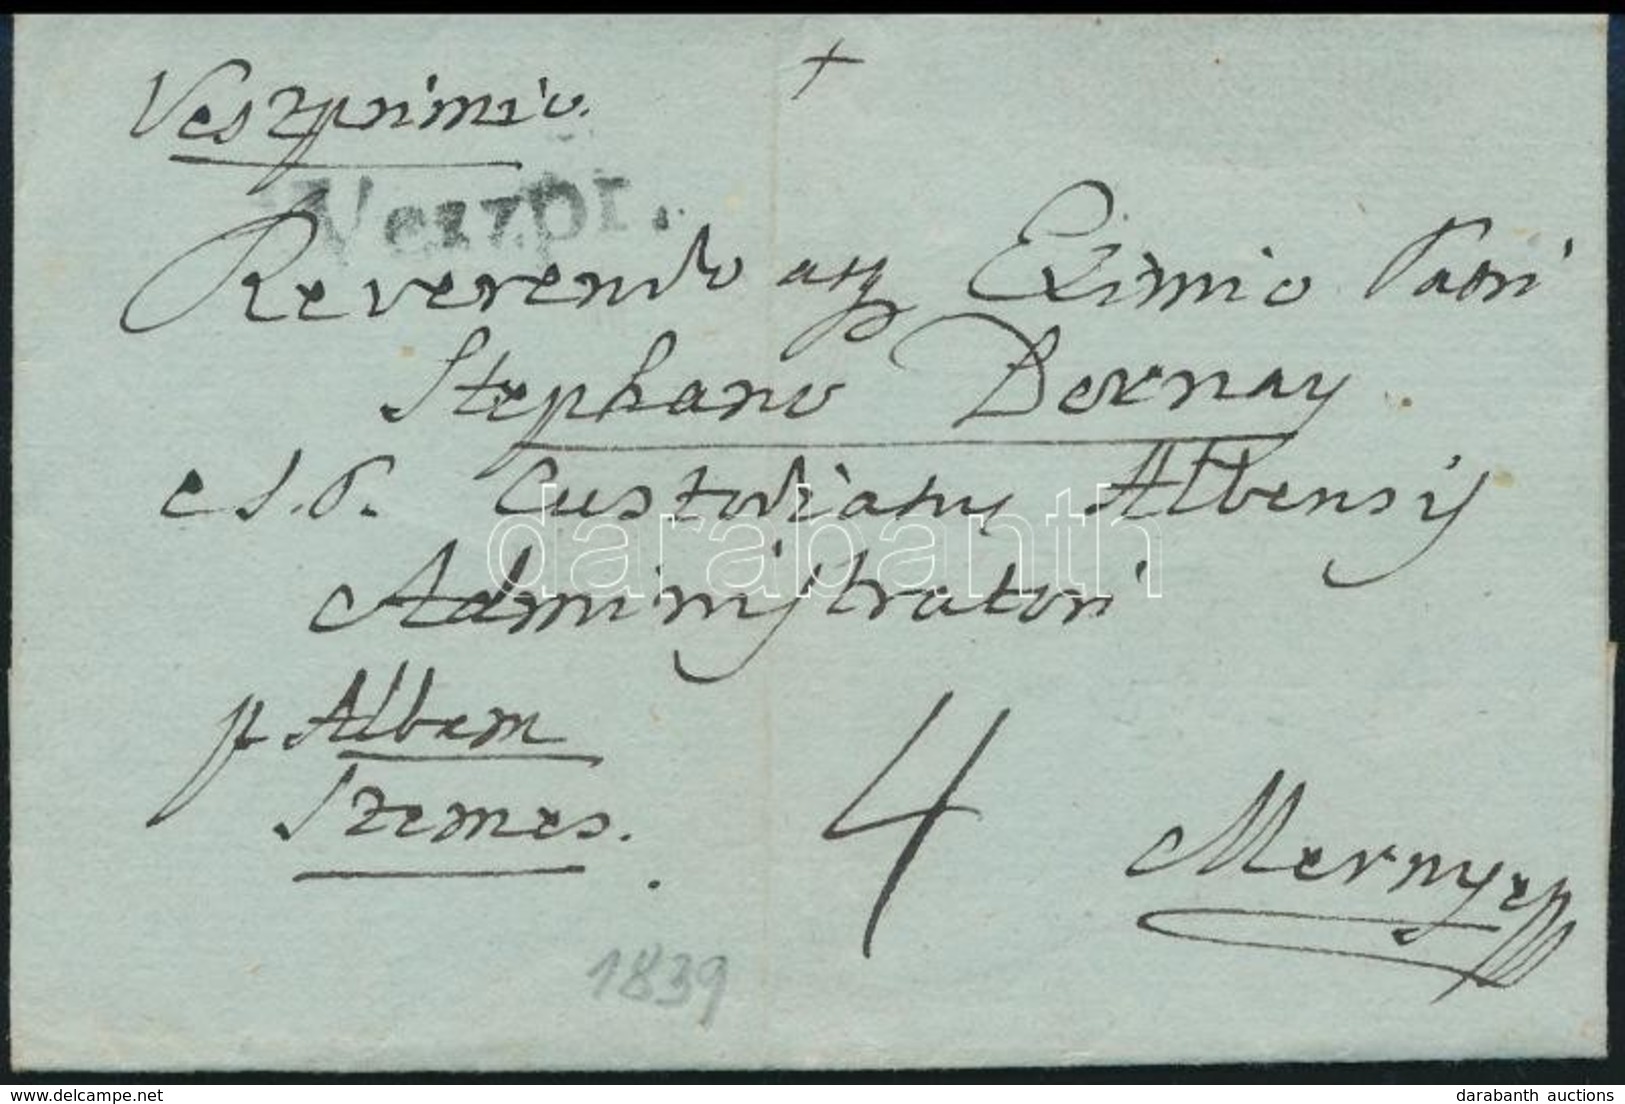 +
Veszprimio.
Veszpr.
Reverendo atq Eximio Patri
Stephano Dornay
e S. P. Custodiatus Albensis
Administratori
p Albam
Szemes.
4
Mernye
1839
darabanth
www.delcampe.net
darabanth auctions